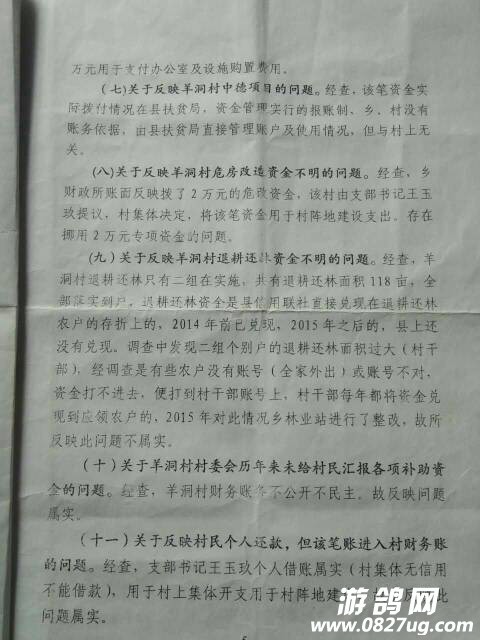 万元用于支付办公室及设施购置费用。
(七)关于反映羊洞村中德项目的问题。经查，该笔资金实
际拨付情况在县扶贫局，资金管理实行的报账制，乡、村没有
账务依据，由县扶贫局直接管理账户及使用情况，但与村上无
关。
(八)关于反映羊洞村危房改造资金不明的问题。经查，乡
财政所账面反映拨了2万元的危改资金，该村由支部书记王玉
玖提议，村集体决定，将该笔资金用于村阵地建设支出。存在
挪用2万元专项资金的问题。
(九)关于反映羊洞村退耕还林资金不明的问题。经查，羊
洞村退耕还林只有二组在实施，共有退耕还林面积118亩，全
部落实到户。退耕还林资金是县信用联社直接兑现在退耕还林
农户的存折上的，2014年前已兑现，2015年之后的，县上还
没有兑现。调查中发现二组个别户的退耕还林面积过大（村干
部），经调查是有些农户没有账号（全家外出）或账号不对，
资金打不进去，便打到村干部账号上，村干部每年都将资金兑
现到应领农户的，2015年对此情况乡林业站进行了整改，故所
反映此问题不属实。
（十）关于羊洞村村委会历年来未给村民汇报各项补助资
金的问题。经查，羊洞村财务账务不公开不民主。故反映问题
属实。
（十一）关于反映村民个人还款，但该笔账进入村财务账
的问题。经查，支部书记王玉玖个人借账属实（村集体无信用
不能借款），用于村上集体开支用于村阵地建
此
问题属实。
游鸽网
www.0827ug.com